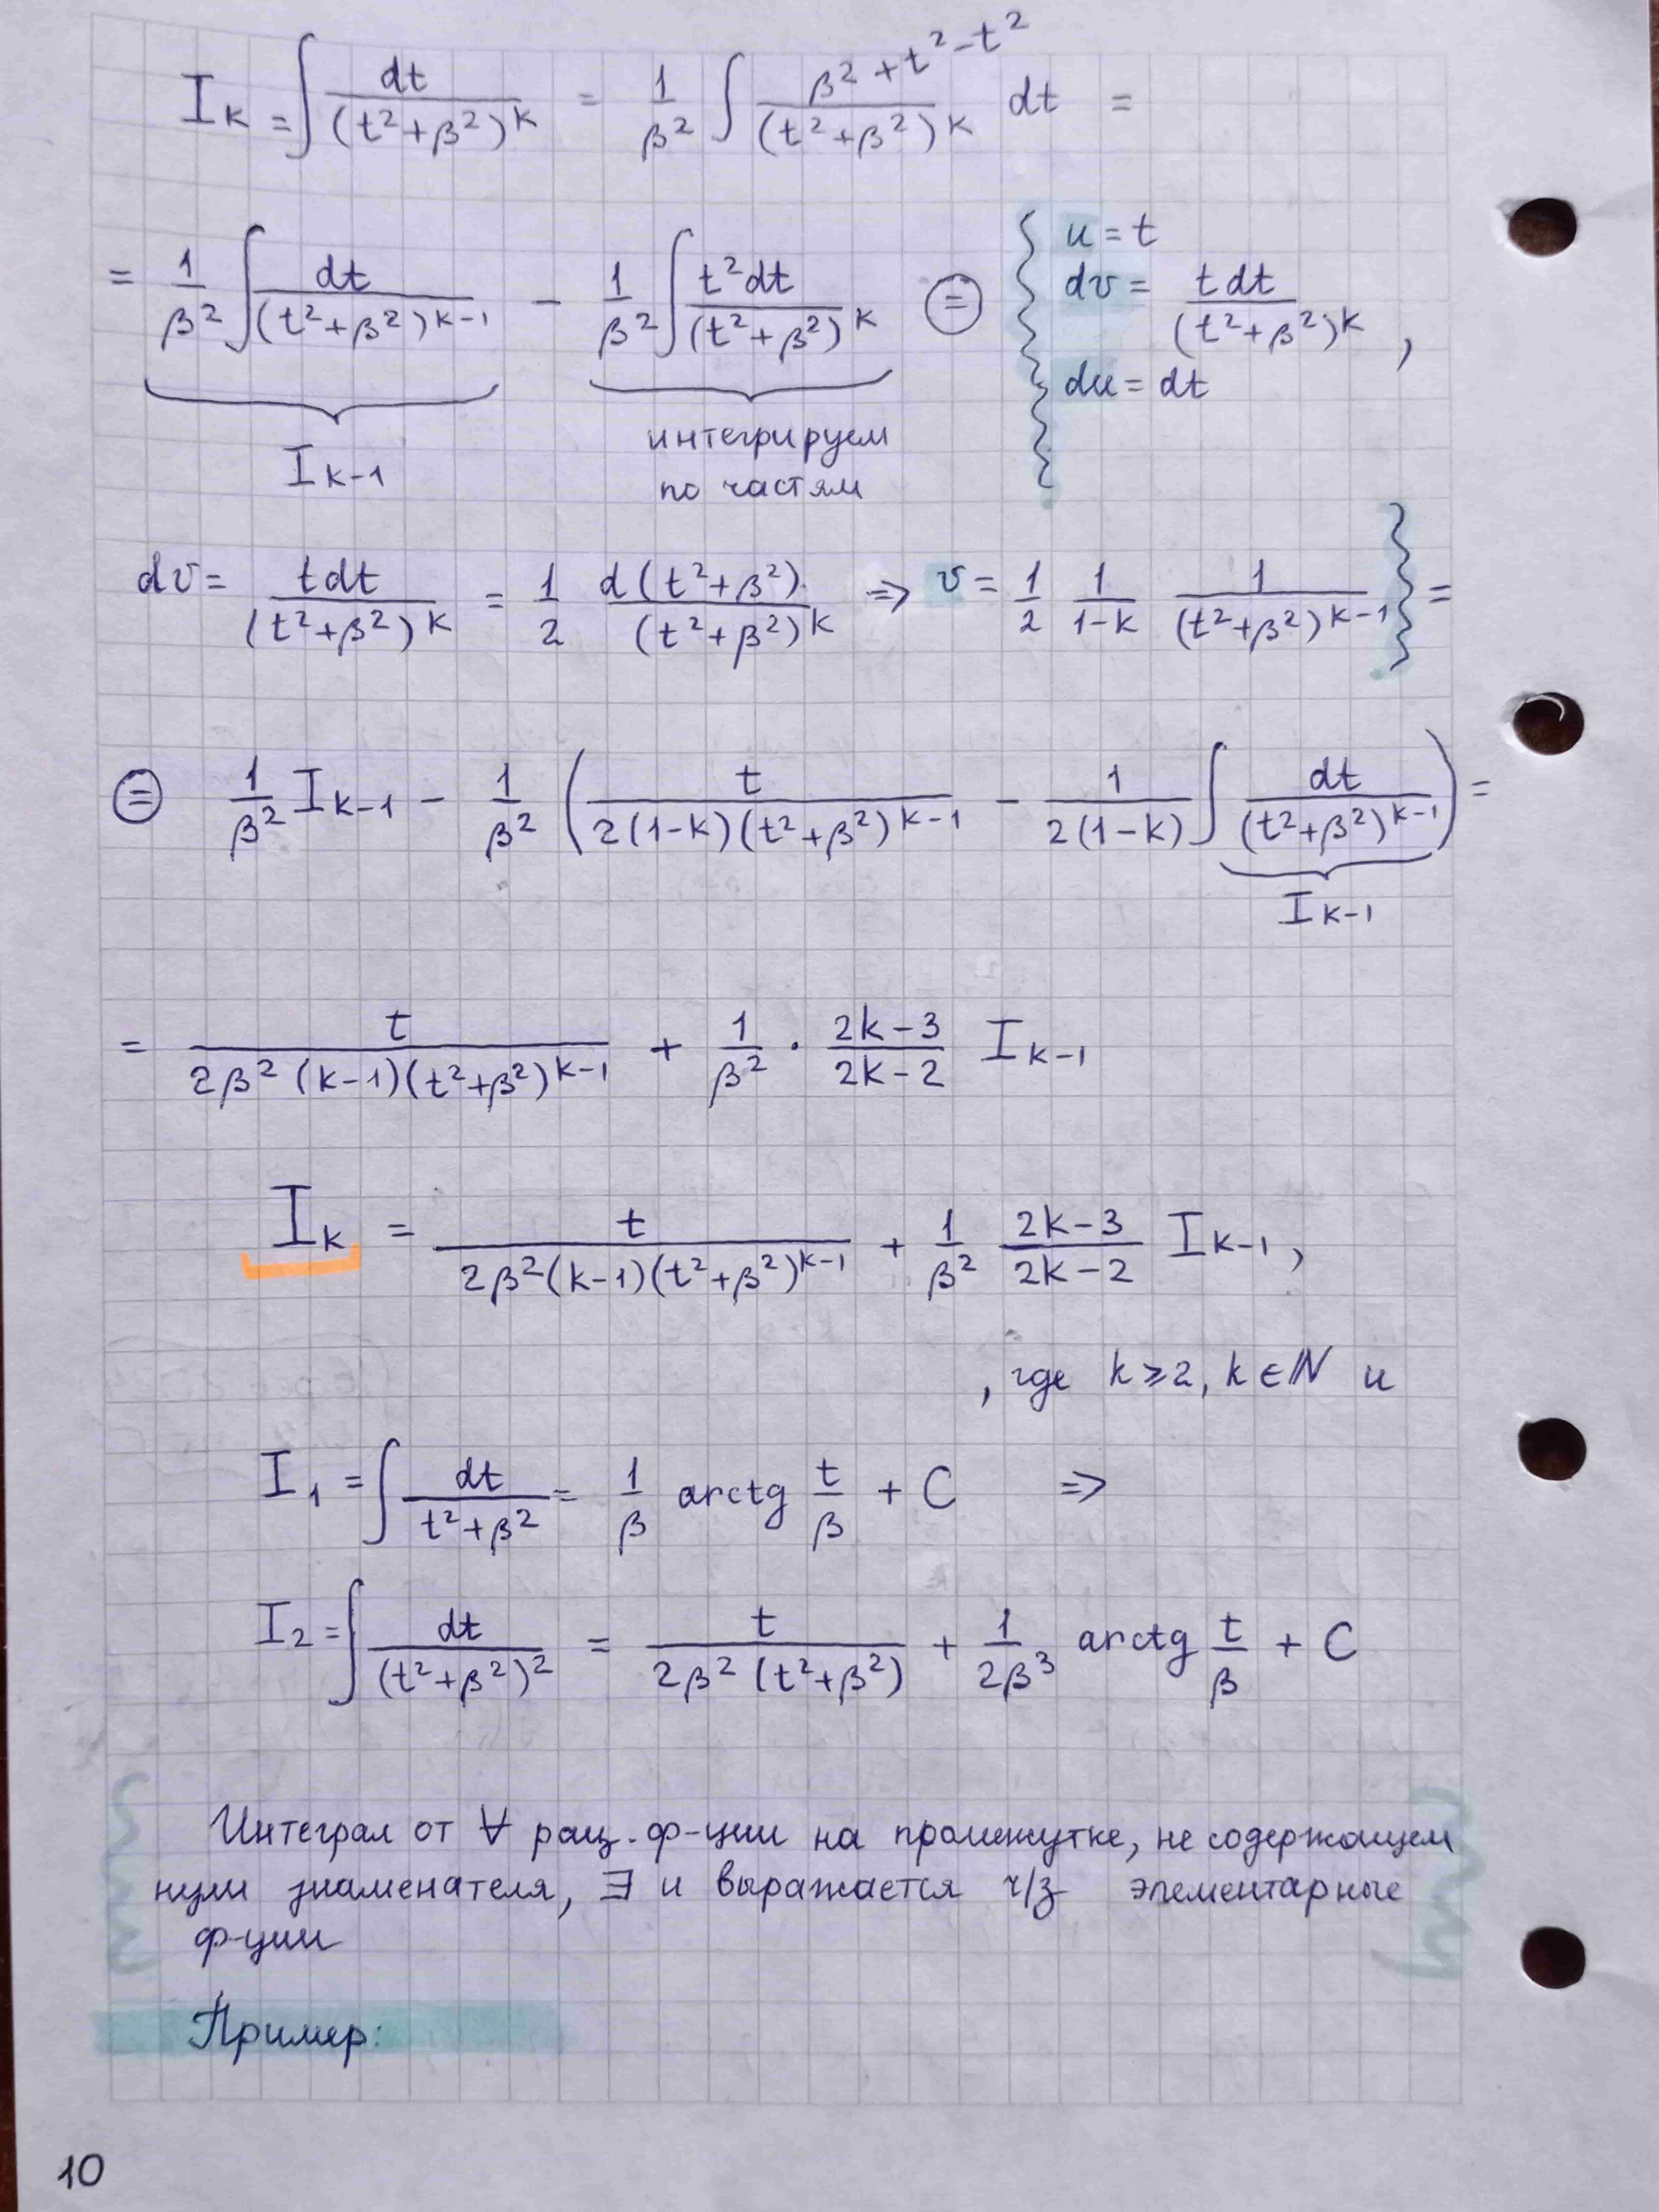 I_k = ∫ dt/(t²+β²)^k = 1/β² ∫ (β²+t²-t²)/(t²+β²)^k dt =
= 1/β² ∫ dt/(t²+β²)^(k-1) - 1/β² ∫ t²dt/(t²+β²)^k ⊜ { u = t
dv = tdt/(t²+β²)^k ,
du = dt
I_(k-1)
интегрируем
по частям
dv = tdt/(t²+β²)^k = 1/2 d(t²+β²)/(t²+β²)^k ⇒ v = 1/2 1/(1-k) 1/(t²+β²)^(k-1) } =
⊜ 1/β² I_(k-1) - 1/β² ( t/(2(1-k)(t²+β²)^(k-1)) - 1/(2(1-k)) ∫ dt/(t²+β²)^(k-1) ) =
I_(k-1)
= t/(2β²(k-1)(t²+β²)^(k-1)) + 1/β² · (2k-3)/(2k-2) I_(k-1)
I_k = t/(2β²(k-1)(t²+β²)^(k-1)) + 1/β² (2k-3)/(2k-2) I_(k-1) ,
, где k ⩾ 2, k ∈ ℕ и
I_1 = ∫ dt/(t²+β²) = 1/β arctg t/β + C ⇒
I_2 = ∫ dt/(t²+β²)² = t/(2β²(t²+β²)) + 1/(2β³) arctg t/β + C
Интеграл от ∀ рац. ф-ции на промежутке, не содержащем
нули знаменателя, ∃ и выражается ч/з элементарные
ф-ции
Пример:
10